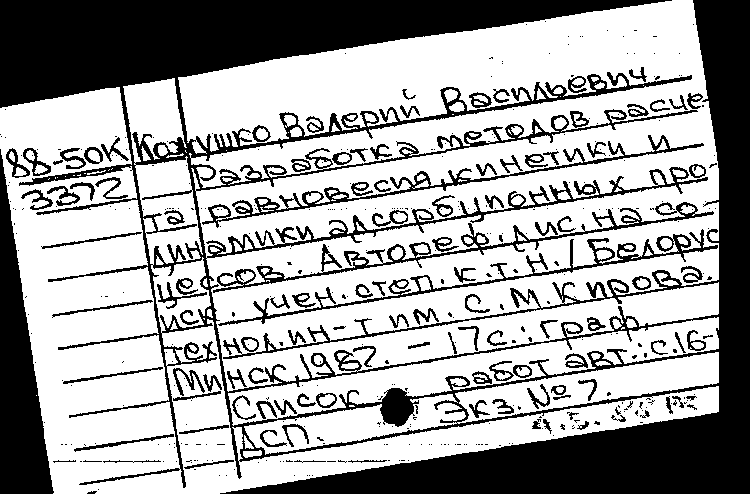 88-50К Кожушко, Валерий Васильевич.
3372 Разработка методов расче-
та равновесия, кинетики и
динамики адсорбционных про-
цессов: Автореф. дис. на со-
иск. учен. степ. к.т.н. / Белорус
технол. ин-т им. С.М.Кирова.
Минск, 1987. - 17с.: граф.
Список работ авт.: с.16-
ДСП. Экз. №7.